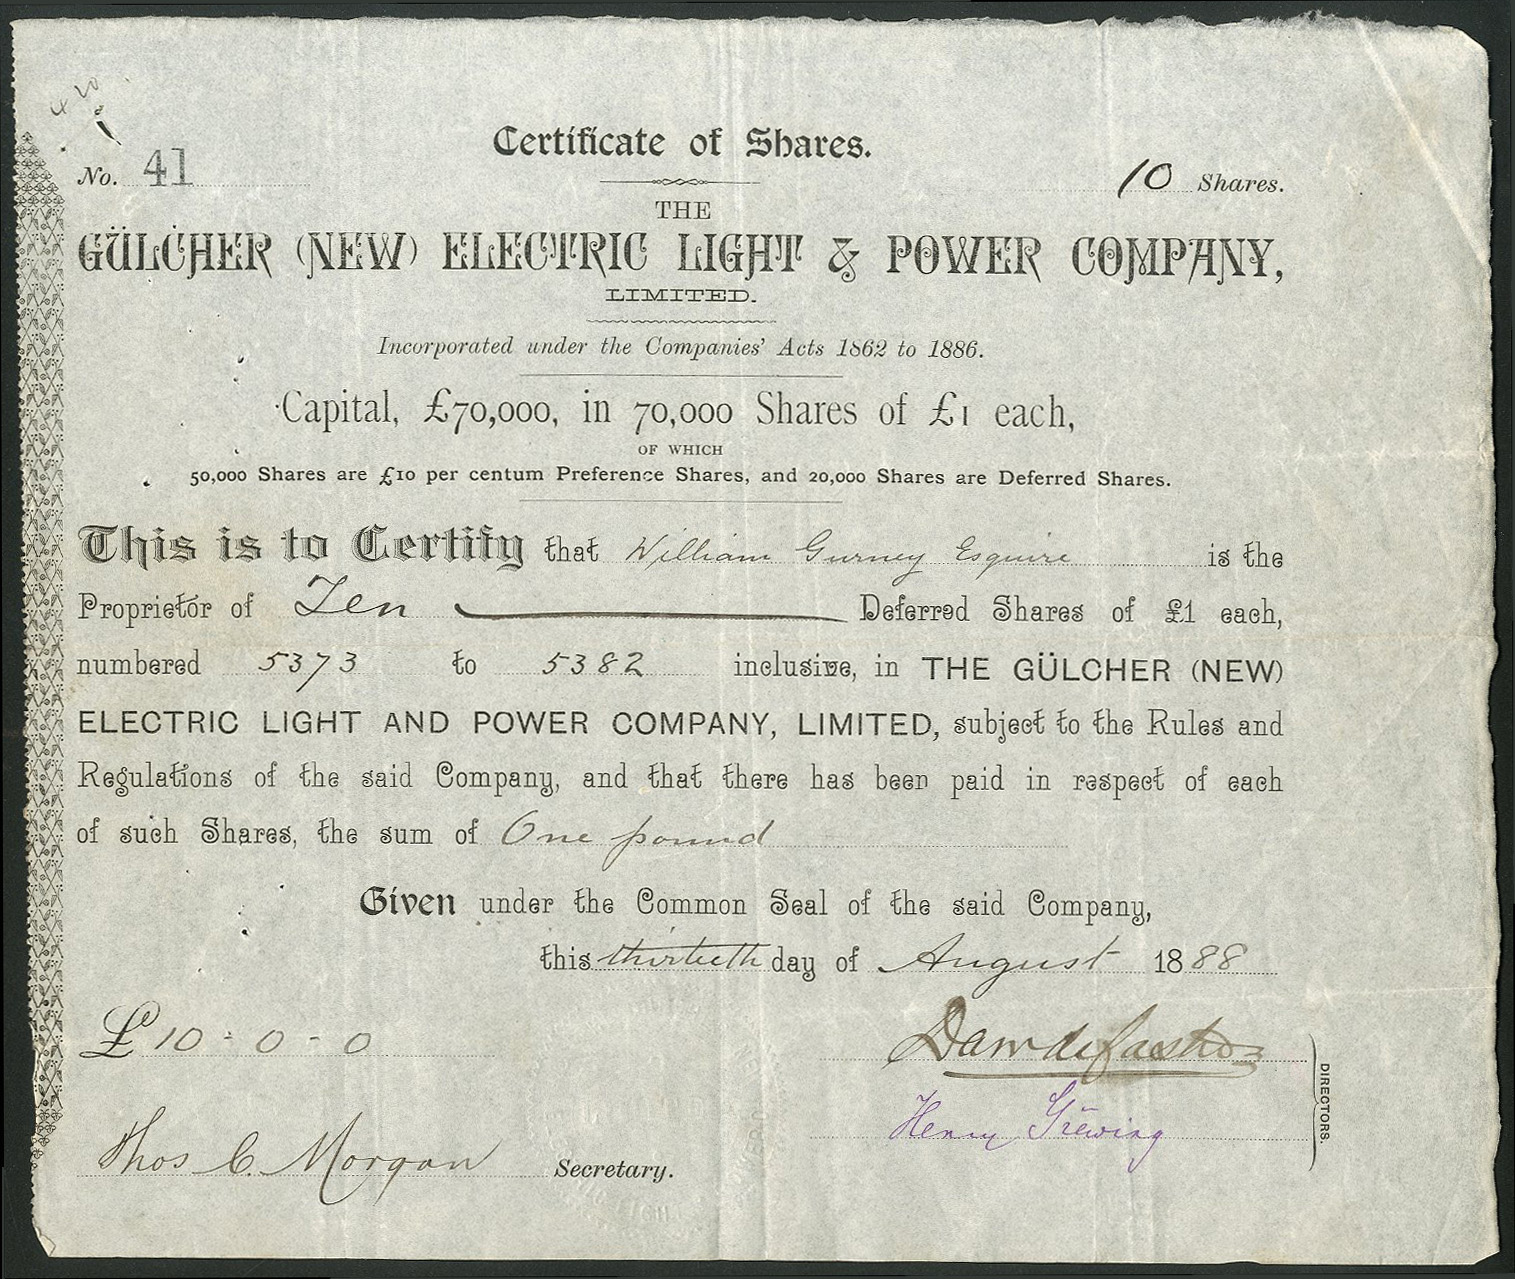 420
Certificate of Shares.
No. 41
10 Shares.
THE
GÜLCHER (NEW) ELECTRIC LIGHT & POWER COMPANY,
LIMITED.
Incorporated under the Companies' Acts 1862 to 1886.
Capital, £70,000, in 70,000 Shares of £1 each,
OF WHICH
50,000 Shares are £10 per centum Preference Shares, and 20,000 Shares are Deferred Shares.
This is to Certify that William Gurney Esquire is the
Proprietor of Ten Deferred Shares of £1 each,
numbered 5373 to 5382 inclusive, in THE GÜLCHER (NEW)
ELECTRIC LIGHT AND POWER COMPANY, LIMITED, subject to the Rules and
Regulations of the said Company, and that there has been paid in respect of each
of such Shares, the sum of One pound
Given under the Common Seal of the said Company,
this thirtieth day of August 1888
£10-0-0
Henry Grewing
DIRECTORS.
Thos C. Morgan Secretary.